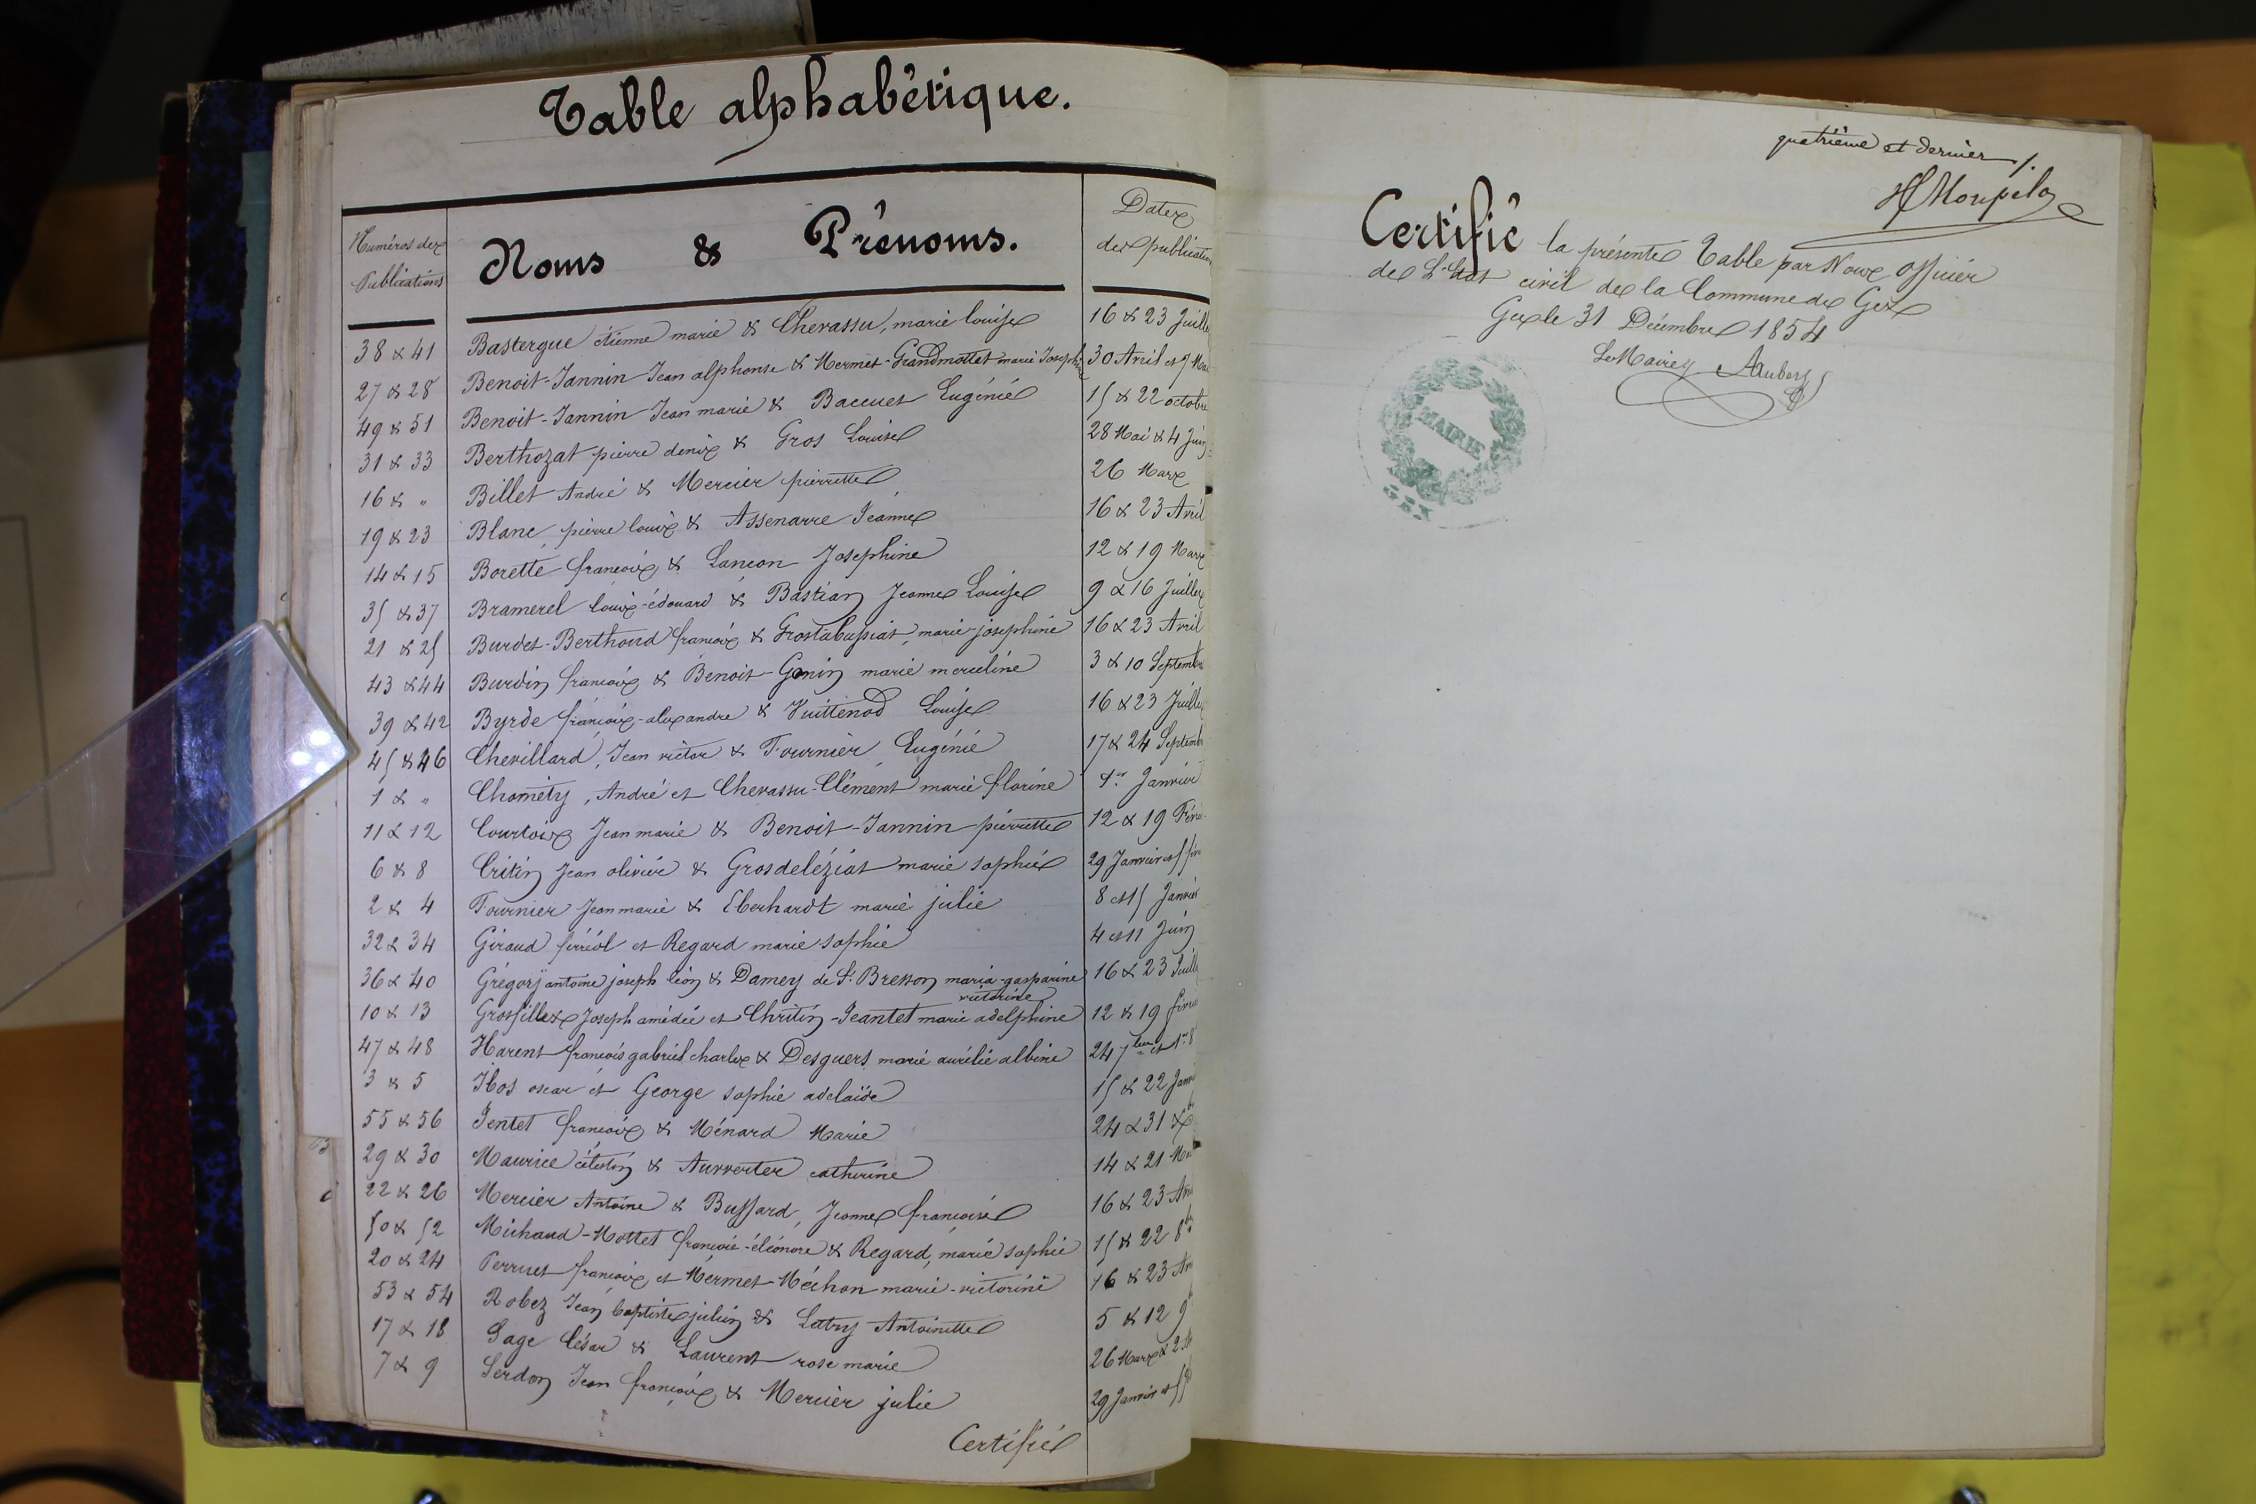 Table alphabétique.
Numéros des Publications
Noms & Prénoms.
Dates des publications
38 & 41 Bastergue étienne marie & Chevassu, marie louise 16 & 23 Juill
27 & 28 Benoit-Jannin Jean alphonse & Mermet-Grandmottet marie Joseph 30 Avril et 7 Mai
49 & 51 Benoit-Jannin Jean marie & Baccuet Eugénie 15 & 22 octobre
31 & 33 Berthozat pierre denis & Gros Louise 28 Mai & 4 Juin
16 & " Billet André & Mercier pierrette 26 Mars
19 & 23 Blanc, pierre louis & Assenarre Jeanne 16 & 23 Avril
14 & 15 Borette françois & Lancon Josephine 12 & 19 Mars
35 & 37 Bramerel louis-édouard & Bastian Jeanne Louise 9 & 16 Juillet
21 & 25 Burdet-Berthoud françois & Grostabussiat, marie-josephine 16 & 23 Avril
43 & 44 Burdin françois & Benoit-Gonin marie merceline 3 & 10 Septembre
39 & 42 Byrde françois-alexandre & Vuittenod Louise 16 & 23 Juillet
45 & 46 Chevillard, Jean victor & Fournier Eugénie 17 & 24 Septemb
1 & " Chométy, André et Chevassu-Clément marie florine 1er Janvier
11 & 12 Courtois Jean marie & Benoit-Jannin pierrette 12 & 19 Févri
6 & 8 Critin Jean olivier & Grosdeléziat marie sophie 29 Janvier et 5 fév
2 & 4 Fournier Jean marie & Eberhardt marie julie 8 et 15 Janvier
32 & 34 Giraud férréol et Regard marie sophie 4 et 11 Juin
36 & 40 Grégory antoine joseph léon & Damey de St. Bresson maria-gasparine victorine 16 & 23 Juill
10 & 13 Grosfillex Joseph amédée et Chritin-Jeantet marie adelphine 12 & 19 févri
47 & 48 Harent françois gabriel charles & Desguers marie aurélie albine 24 7bre et 1er 8
3 & 5 Ibos oscar et George sophie adelaïde 15 & 22 Janvi
55 & 56 Jentet françois & Ménard Marie 24 & 31 Xb
29 & 30 Maurice célestin & Aurverter catherine 14 & 21 Mai
22 & 26 Mercier Antoine & Buffard, Jeanne françoise 16 & 23 Avri
50 & 52 Michaud-Mottet françois-éléonore & Regard, marie sophie 15 & 22 8b
20 & 24 Perruet françois et Mermet-Méchon marie-victorine 16 & 23 Avr
53 & 54 Robez Jean baptiste julien & Latry Antoinette 5 & 12 9
17 & 18 Sage César & Laurent rose marie 26 Mars & 2
7 & 9 Serdon Jean françois & Mercier julie 29 Janvier et 5 f
Certifié
quatrième et dernier /.
Certifié la présente Table par Nous officier
de L'Etat civil de la Commune de Gex
Gex le 31 Décembre 1854
Le Maire
MAIRIE
GEX